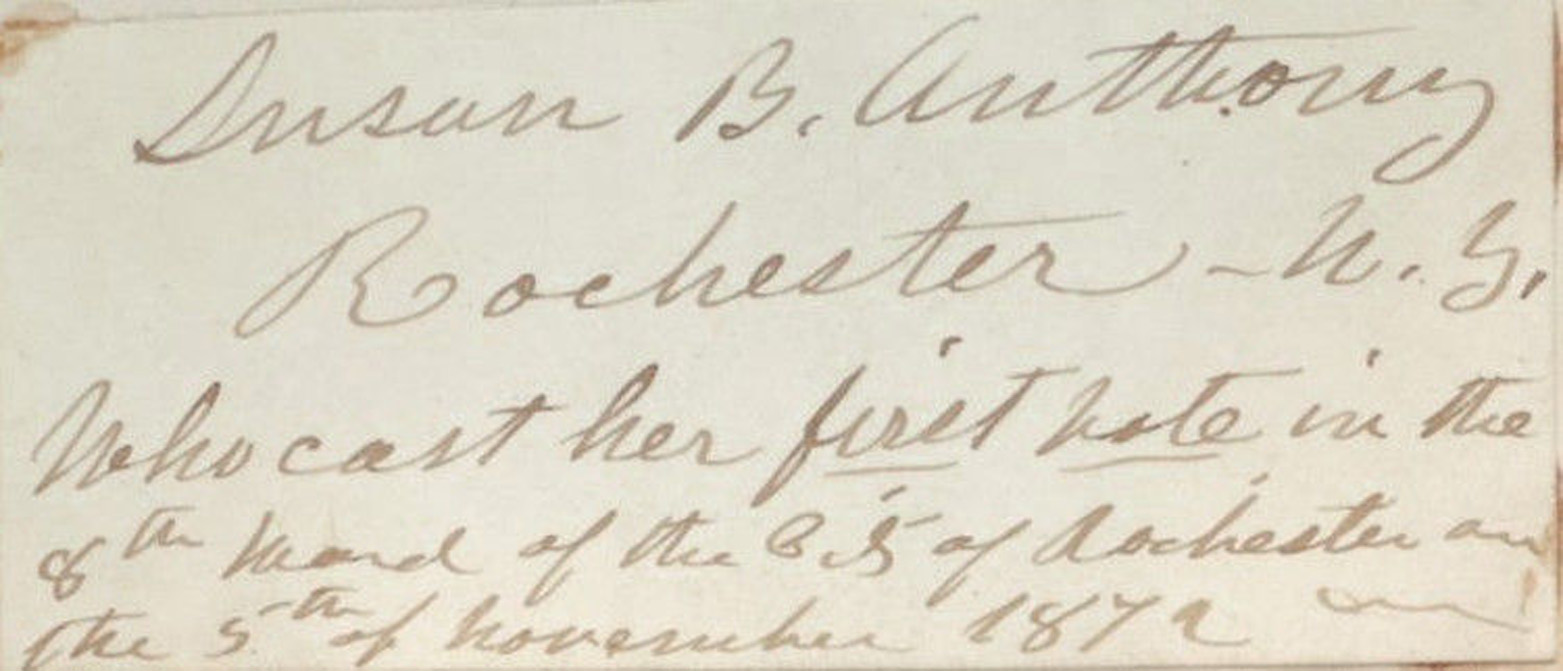 Susan B. Anthony
Rochester - N. Y.
Who cast her first vote in the
8th Ward of the City of Rochester on
the 5th of November 1872